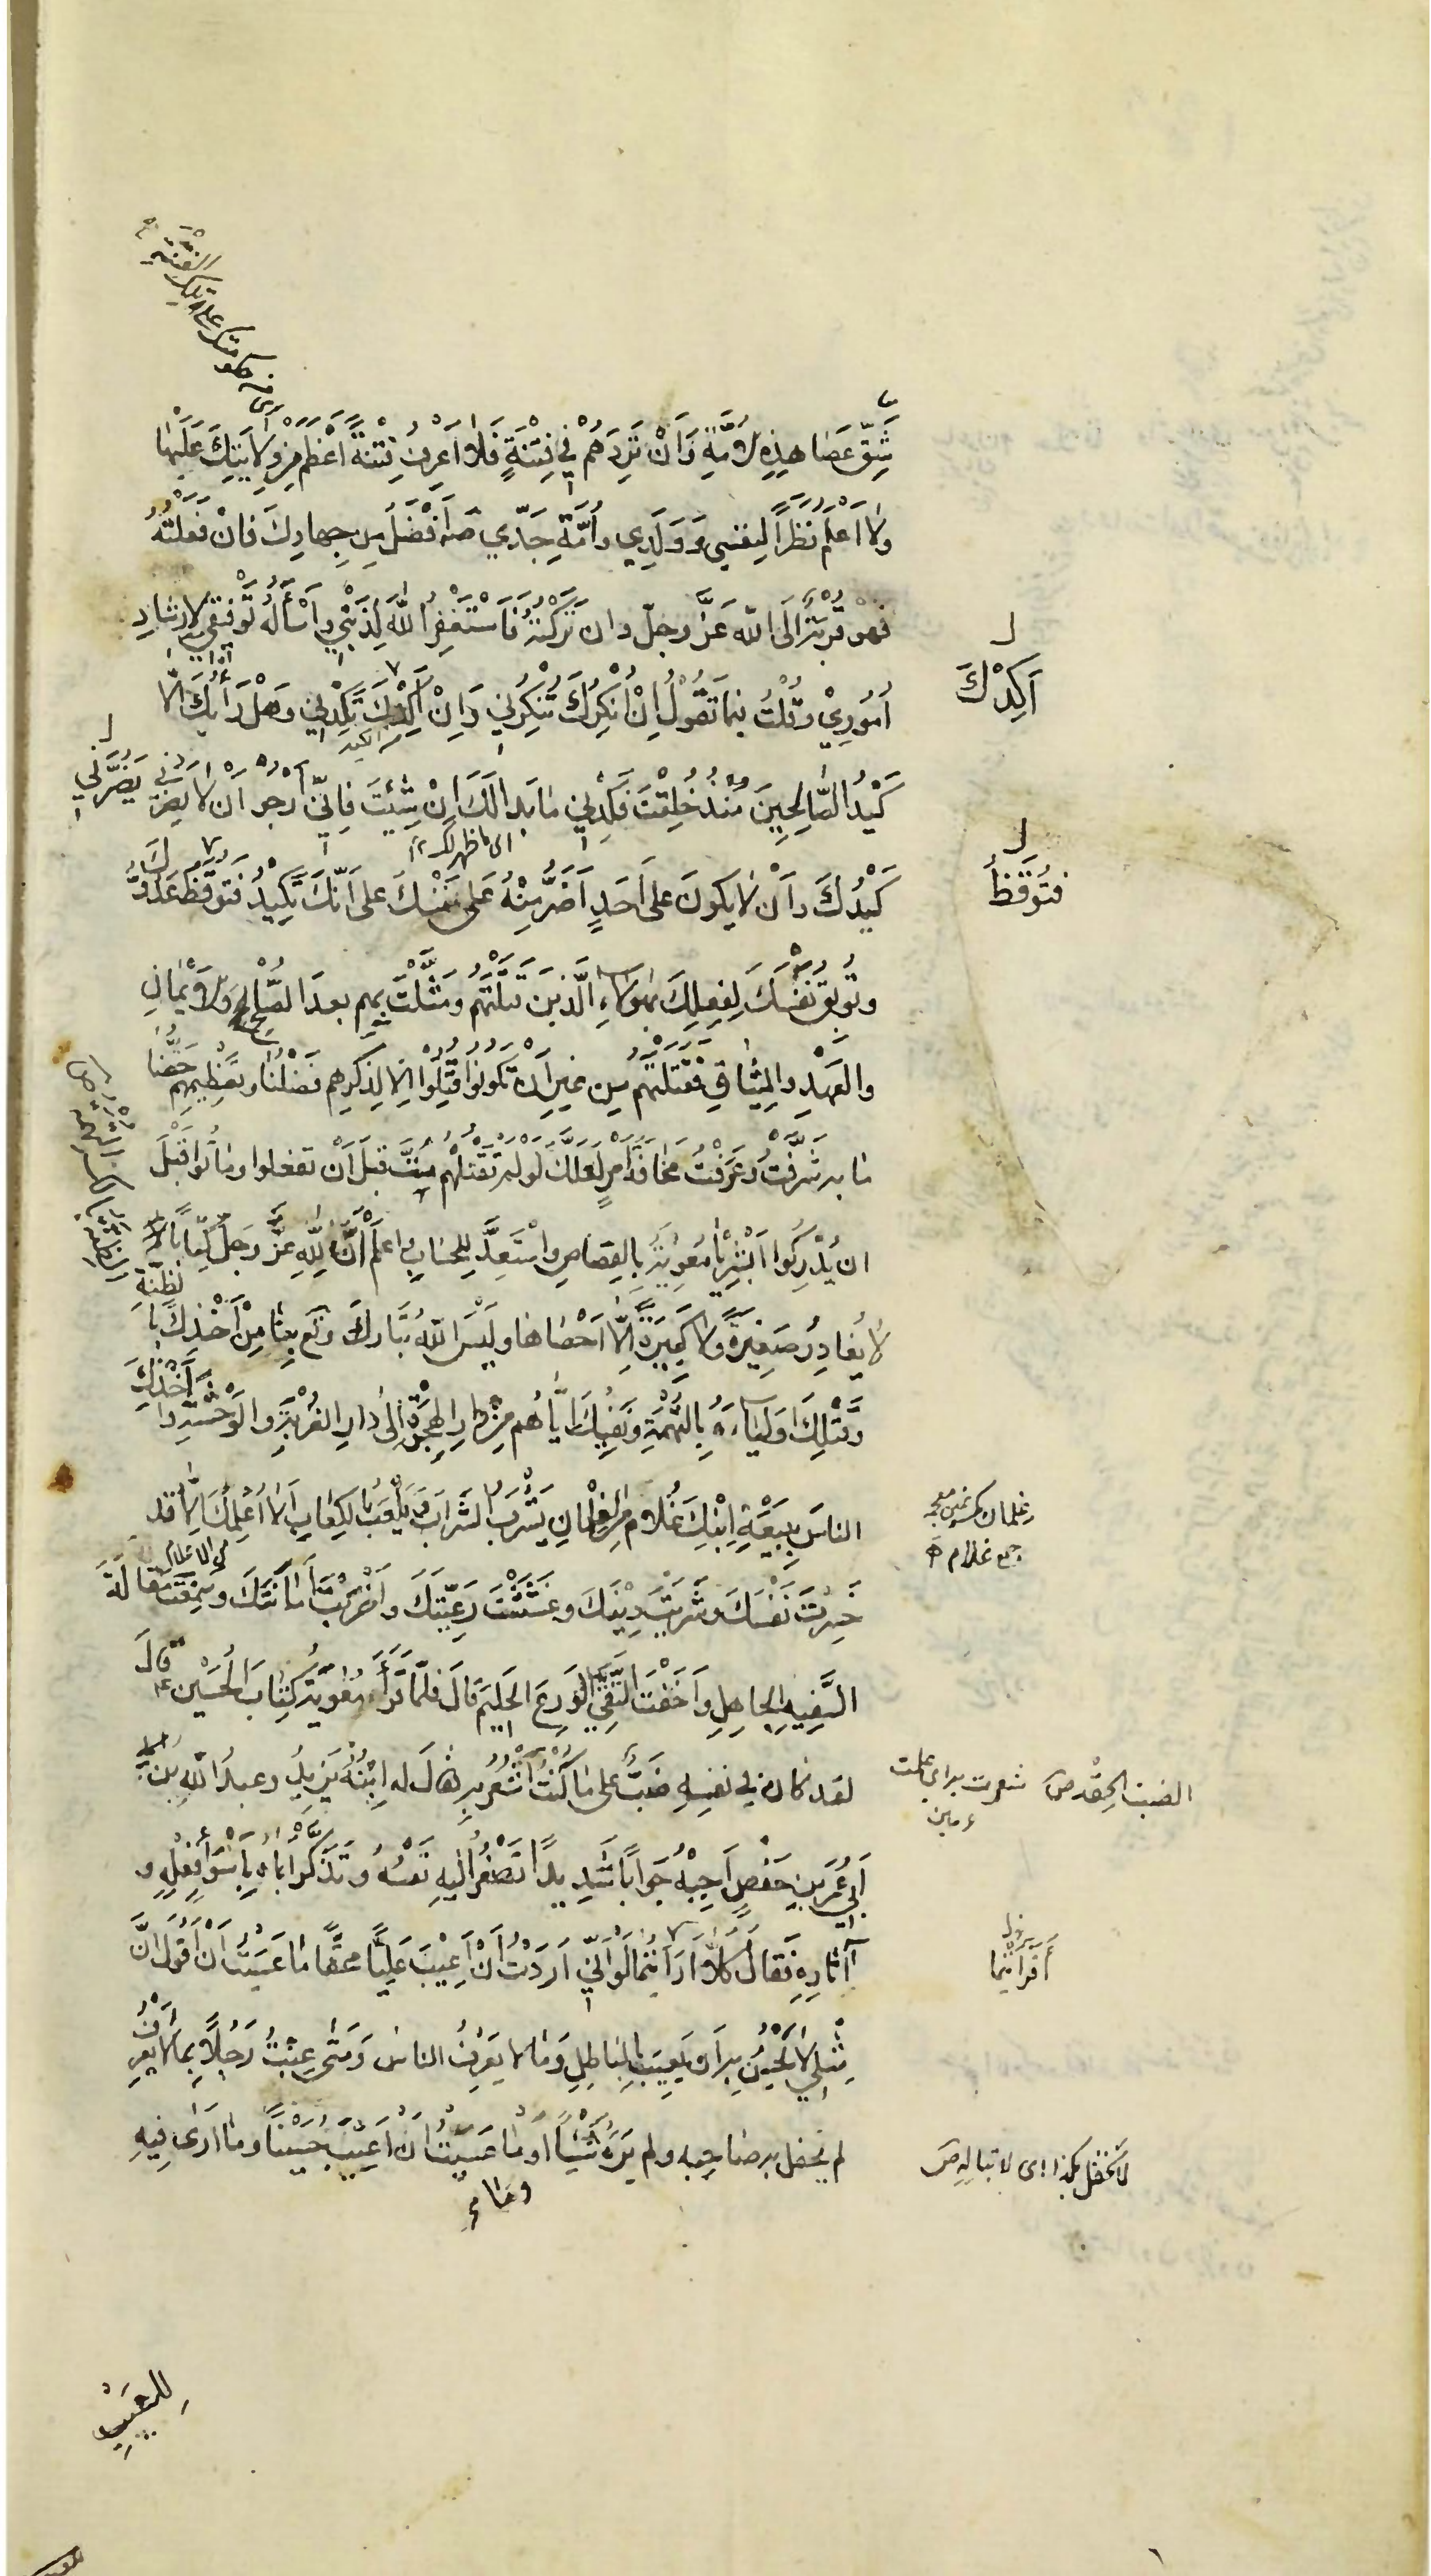 شَقَّ عَصَا هٰذِهِ الأُمَّةِ وَأَنْ تَرِدَهُمْ فِي فِتْنَةٍ فَلَا أَعْرِفُ فِتْنَةً أَعْظَمَ مِنْ وِلَايَتِكَ عَلَيْهَا
وَلَا أَعْلَمُ نَظَرًا لِنَفْسِي وَوَلَدِي وَأُمَّةِ جَدِّي أَفْضَلَ مِن جِهَادِكَ فَإِنْ فَعَلْتُهُ
فَهُوَ قُرْبَةٌ إِلَى اللّٰهِ عَزَّ وَجَلَّ وَإِن تَرَكْتُهُ فَأَسْتَغْفِرُ اللّٰهَ لِذَنْبِي وَأَسْأَلُهُ تَوْفِيقِي لِإِرْشَادِ
أَكِدْكَ
أُمُورِي وَقُلْتَ فِيمَا تَقُولُ إِنْ أُنْكِرْكَ تُنْكِرْنِي وَإِنْ أَكِدْكَ تَكِدْنِي وَهَلْ رَأْيُكَ إِلَّا
كَيْدُ الصَّالِحِينَ مُنْذُ خُلِقْتَ فَكِدْنِي مَا بَدَا لَكَ إِنْ شِئْتَ فَإِنِّي أَرْجُو أَنْ لَا يَضُرَّنِي
اى ما ظهر لك
فتُوقظُ
كَيْدُكَ وَأَنْ لَا يَكُونَ عَلَى أَحَدٍ أَضَرَّ مِنْهُ عَلَى نَفْسِكَ عَلَى أَنَّكَ تَكِيدُ فَتُوقِظُ عَدُوَّكَ
وَتُوبِقُ نَفْسَكَ لِفِعْلِكَ بِهٰؤُلَاءِ الَّذِينَ قَتَلْتَهُمْ وَمَثَّلْتَ بِهِم بَعدَ الصُّلْحِ وَالأَيْمَانِ
وَالعَهْدِ وَالمِيثَاقِ فَقَتَلْتَهُمْ مِن غَيْرِ أَن تَكُونُوا قُتِلُوا إِلَّا لِذِكْرِهِم فَضْلَنَا وَتَعْظِيمِهِم حَقَّنَا
مَا بِهِ شَرُفْتَ وَعَرَفْتَ مَخَافَةَ أَمْرٍ لَعَلَّكَ لَو لَم تَقْتُلْهُم مُتَّ قَبلَ أَنْ تَفعَلُوا وَمَاتُوا قَبْلَ
أن يُدْرِكُوا أَبْشِرْ يَا مُعٰوِيَةُ بِالقِصَاصِ وَاسْتَعِدَّ لِلحِسَابِ وَاعْلَمْ أَنَّ لِلّٰهِ عَزَّ وَجَلَّ كِتَابًا
لَا يُغَادِرُ صَغِيرَةً وَلَا كَبِيرَةً إِلَّا أَحْصَاهَا وَلَيْسَ اللّٰهُ تَبَارَكَ وَتَع بِنَاسٍ أَخْذَكَ بِالظِّنَّةِ
وَقَتْلَكَ أَولِيَاءَهُ بِالتُّهَمَةِ وَنَفْيَكَ إِيَّاهُم مِن دَارِ الهِجْرَةِ إِلَى دَارِ الغُرْبَةِ وَالوَحْشَةِ وَأَخْذَكَ
جمع غلام
الناسَ بِبَيْعَةِ ابْنِكَ غُلَامٍ مِنَ الغِلْمَانِ يَشْرَبُ الشَّرَابَ وَيَلْعَبُ بِالكِعَابِ لَا أَعْلَمُكَ إِلَّا قَد
خَسِرْتَ نَفْسَكَ وَشَرَيْتَ دِينَكَ وَغَشَشْتَ رَعِيَّتَكَ وَأَخْرَبْتَ أَمَانَتَكَ وَسَمِعْتَ مَقَالَةَ
السَّفِيهِ الجَاهِلِ وَأَخَفْتَ التَّقِيَّ الوَرِعَ الحَلِيمَ قَالَ فَلَمَّا قَرَأَ مُعٰوِيَةُ كِتَابَ الحُسَيْنِ ع قَالَ
الضب الحقد ص
لقد كان في نفسه ضَبٌّ عَلَى مَا كُنْتُ أَشْعُرُ بِهِ فقَالَ له ابْنُهُ يَزِيدُ وعبدُ اللّٰهِ بنُ
أَبِي عُمَرَ بنِ حَفْصٍ أَجِبْهُ جَوَابًا شَدِيدًا تُصَغِّرُ إِلَيهِ نَفْسَهُ وَتَذْكُرُ أَبَاهُ بِأَسْوَأِ فِعْلِهِ وَ
آثَارِهِ فَقَالَ كَلَّا أَرَأَيْتُمَا لَو أَنِّي أَرَدْتُ أَنْ أَعِيبَ عَلِيًّا مُحِقًّا مَا عَسَيْتُ أَنْ أَقُولَ إِنَّ
مِثْلِي لَا يَحْسُنُ بِهِ أَن يَعِيبَ بِالبَاطِلِ وَمَا لَا يَعْرِفُ الناسُ وَمَتَى عِبْتُ رَجُلًا بِمَا لَا يَعْرِفُ
لا تحفل بكذا اى لا تباله ص
لم يحفل به صاحبه ولم يَرَهُ شَيْئًا وَمَا عَسَيْتُ أَنْ أَعِيبَ حُسَيْنًا وَمَا أَرَى فِيهِ
للعَيْبِ